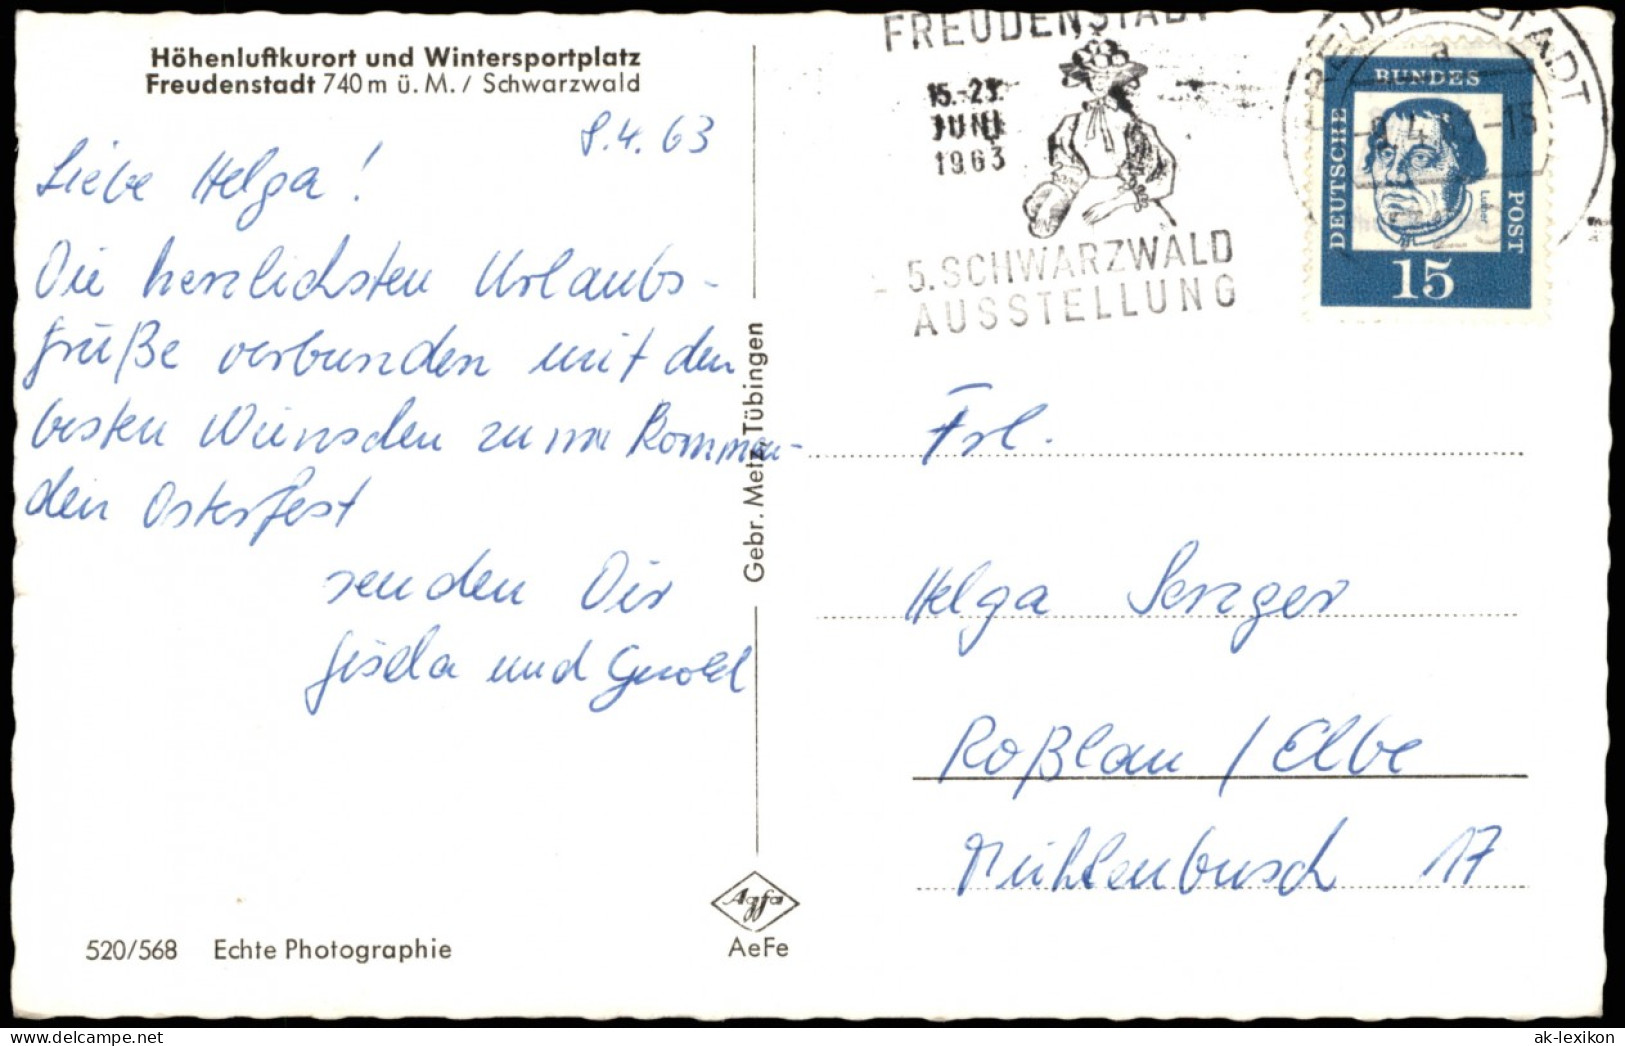 Höhenluftkurort und Wintersportplatz
Freudenstadt 740 m ü. M. / Schwarzwald
8.4.63
Liebe Helga!
Die herzlichsten Urlaubs-
grüße verbunden mit den
besten Wünschen zum kommen-
den Osterfest
senden Dir
Gisela und Gerold
520/568 Echte Photographie
Gebr. Metz, Tübingen
Agfa
AeFe
FREUDENSTADT
15.-23.
JUNI
1963
5. SCHWARZWALD
AUSSTELLUNG
FREUDENSTADT
a
DEUTSCHE
BUNDES
POST
Luther
15
Frl.
Helga Senger
Roßlau / Elbe
Mühlenbusch 17
ak-lexikon